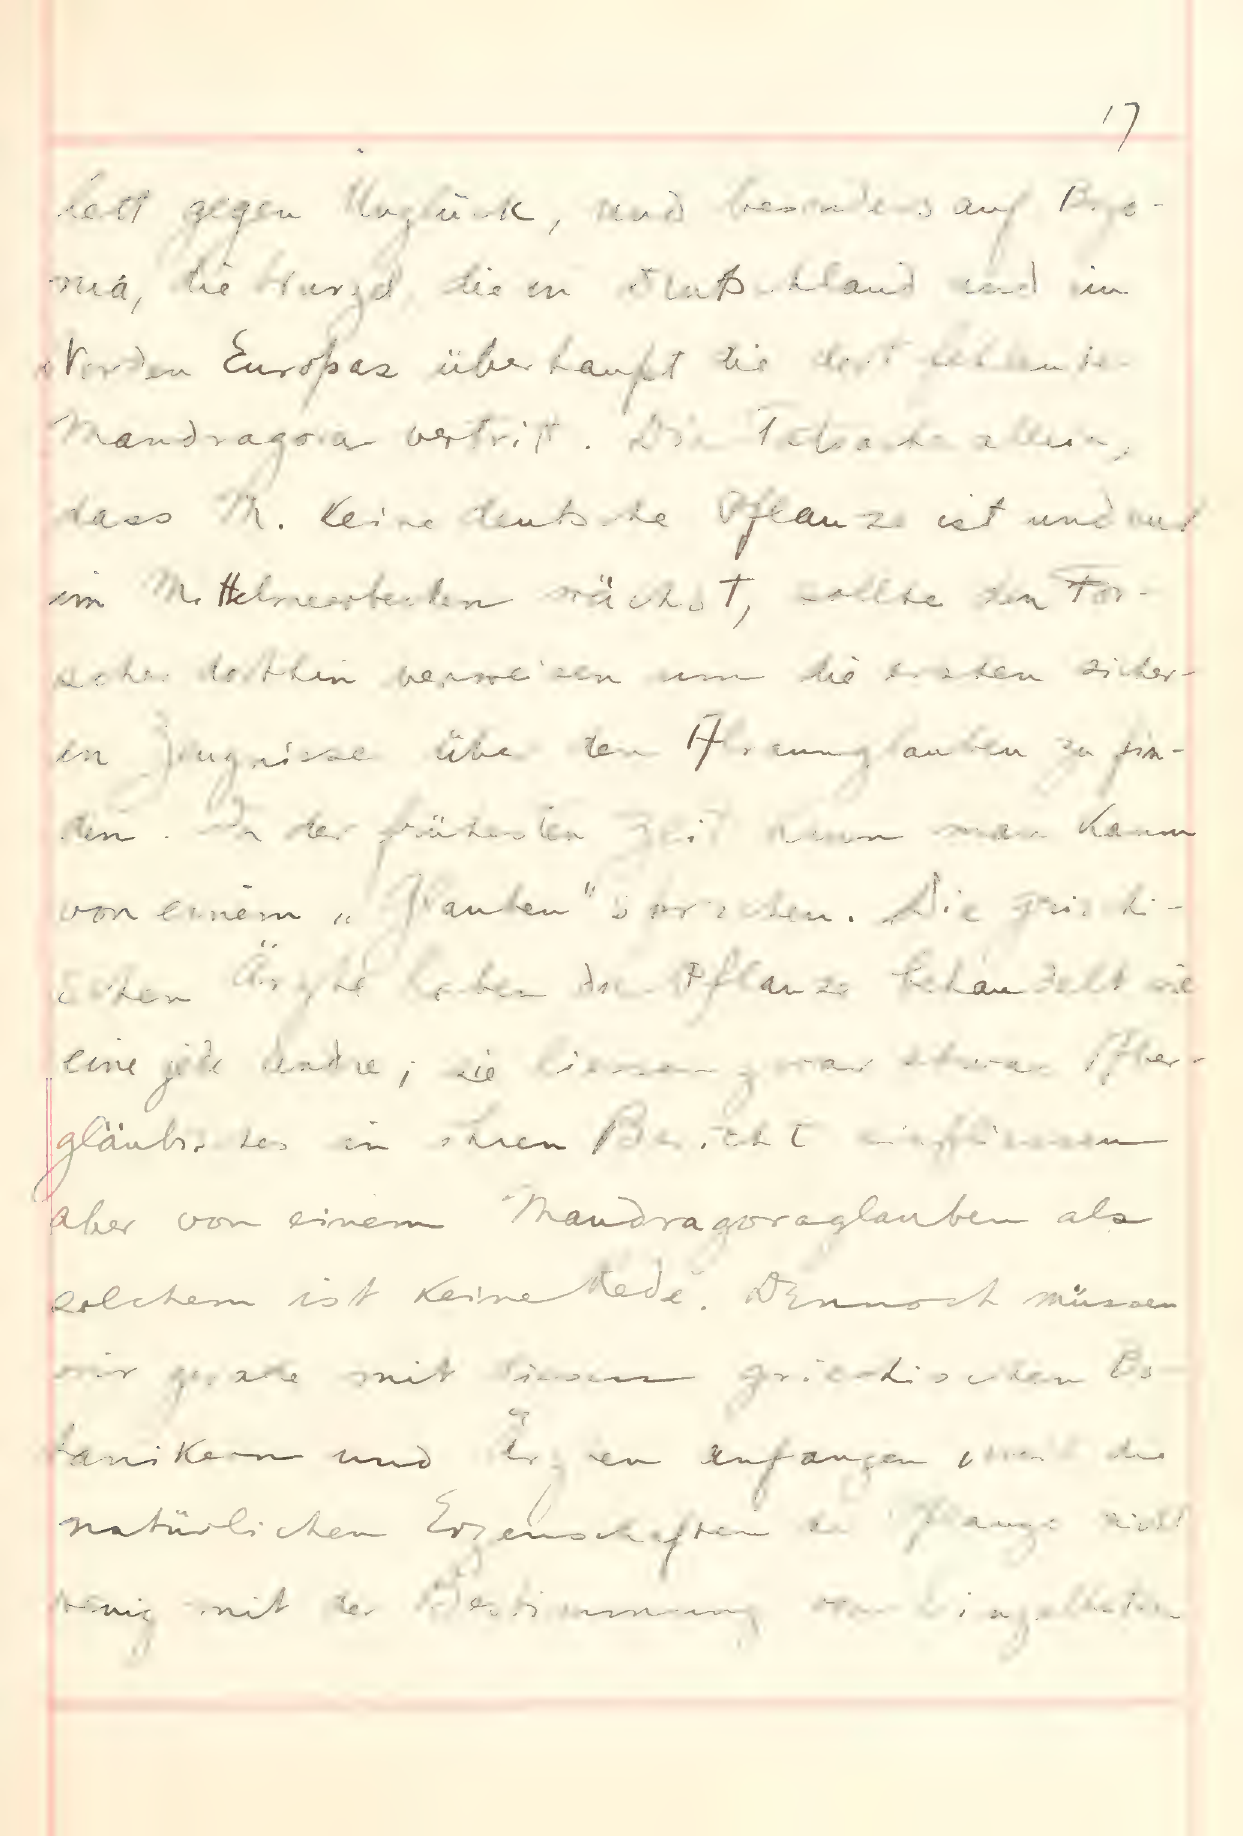 17
hett gegen Unglück, und besonders auf Bryo-
nia, die Wurzel, die in Deutschland und im
Norden Europas überhaupt die dort fehlende
Mandragora vertritt. Die Tatsache allein,
dass M. keine deutsche Pflanze ist und nur
im Mittelmeerbecken wächst, sollte den For-
scher dorthin verweisen um die ersten sicher-
en Zeugnisse über den Alraunglauben zu fin-
den. In der frühesten Zeit kann man kaum
von einem „Glauben" sprechen. Die griechi-
schen Ärzte haben die Pflanze behandelt wie
eine jede andre; sie liessen zwar etwas Aber-
gläubisches in ihren Bericht einfliessen
aber von einem Mandragoraglauben als
solchem ist keine Rede. Dennoch müssen
wir gerade mit diesen griechischen Bo-
tanikern und Ärzten anfangen, weil die
natürlichen Eigenschaften der Pflanze nicht
wenig mit der Bestimmung von